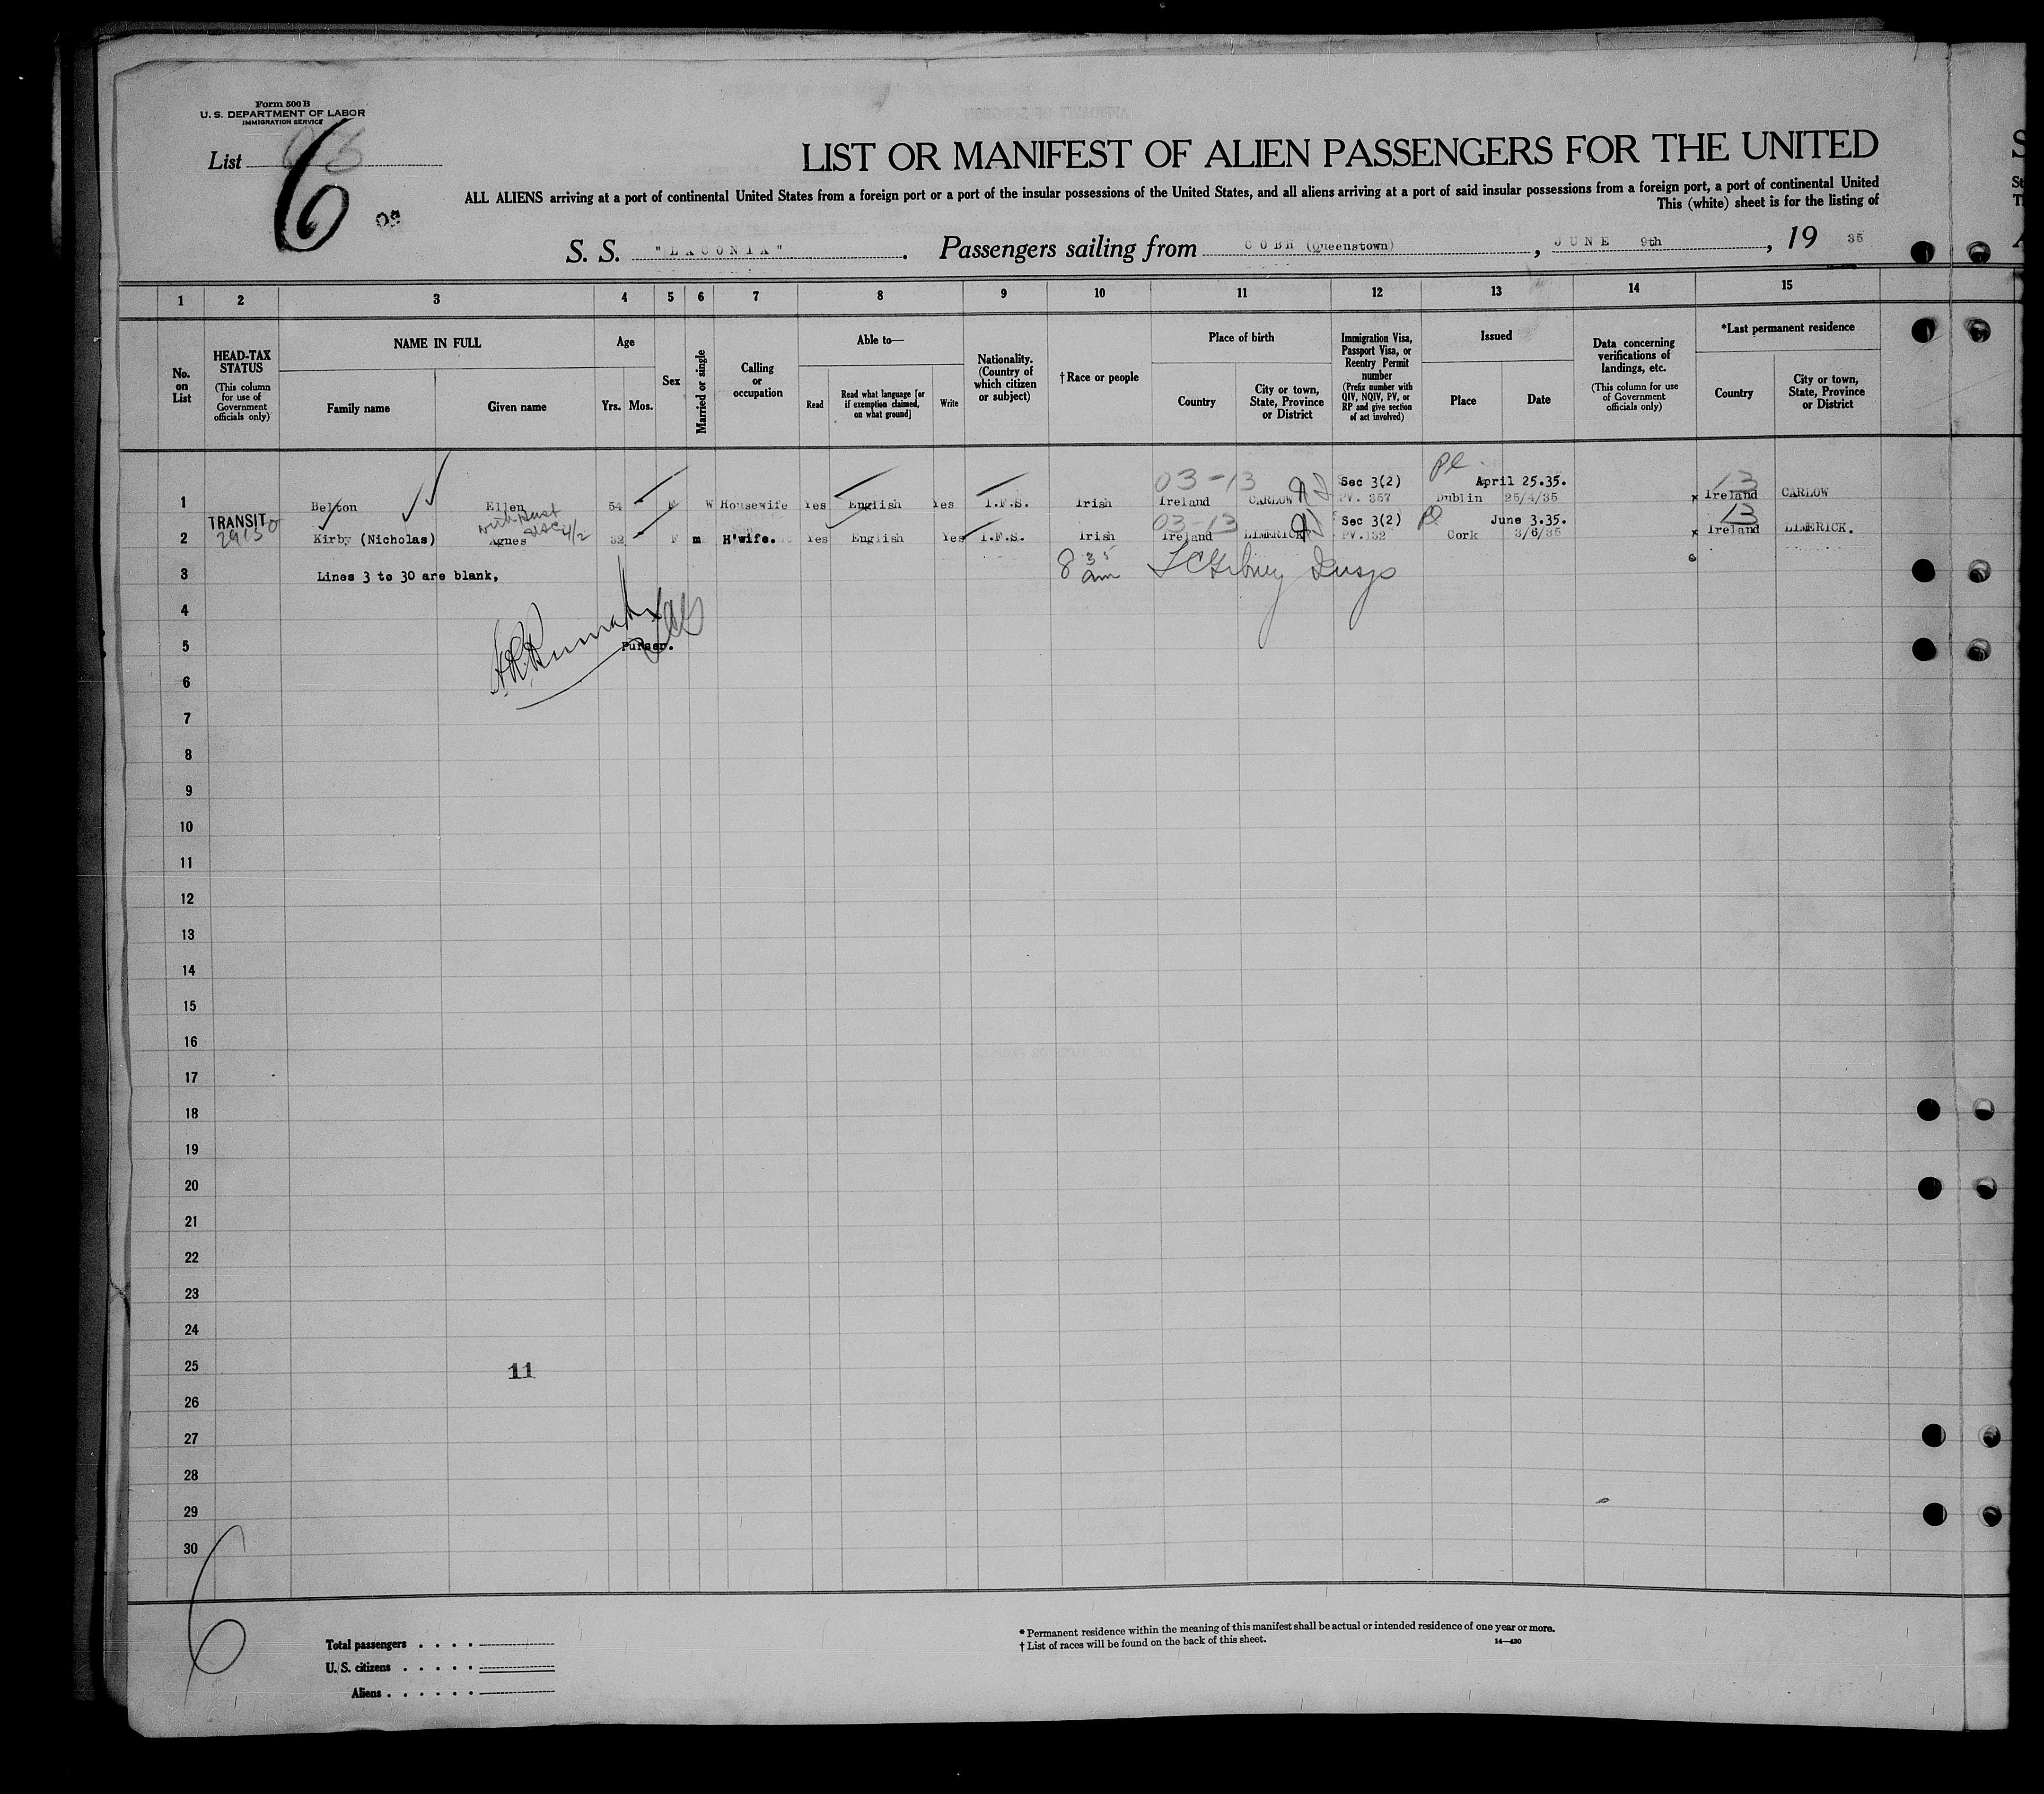 Form 500 B
U. S. DEPARTMENT OF LABOR
IMMIGRATION SERVICE
List
6
LIST OR MANIFEST OF ALIEN PASSENGERS FOR THE UNITED
ALL ALIENS arriving at a port of continental United States from a foreign port or a port of the insular possessions of the United States, and all aliens arriving at a port of said insular possessions from a foreign port, a port of continental United
This (white) sheet is for the listing of
S. S. "LACONIA". Passengers sailing from COBH (Queenstown), JUNE 9th, 19 35
1 2 3 4 5 6 7 8 9 10 11 12 13 14 15
No. on List
HEAD-TAX STATUS (This column for use of Government officials only)
NAME IN FULL
Family name
Given name
Age
Yrs. Mos.
Sex
Married or single
Calling or occupation
Able to—
Read
Read what language [or if exemption claimed, on what ground]
Write
Nationality. (Country of which citizen or subject)
†Race or people
Place of birth
Country
City or town, State, Province or District
Immigration Visa, Passport Visa, or Reentry Permit number (Prefix number with QIV, NQIV, PV, or RP and give section of act involved)
Issued
Place
Date
Data concerning verifications of landings, etc. (This column for use of Government officials only)
*Last permanent residence
Country
City or town, State, Province or District
03-13 Sec 3(2) April 25.35. 13
1 Belton Ellen 54 F W Housewife Yes English Yes I.F.S. Irish Ireland CARLOW PV. 367 Dublin 25/4/35 x Ireland CARLOW
TRANSIT 03-13 Sec 3(2) June 3.35. 13
2 Kirby (Nicholas) Agnes 32 F m H'wife. Yes English Yes I.F.S. Irish Ireland LIMERICK PV.132 Cork 3/6/35 x Ireland LIMERICK.
3 Lines 3 to 30 are blank, 8 35 am
4
5 Purser.
6
7
8
9
10
11
12
13
14
15
16
17
18
19
20
21
22
23
24
25 11
26
27
28
29
30
6
Total passengers
U. S. citizens
Aliens
* Permanent residence within the meaning of this manifest shall be actual or intended residence of one year or more.
† List of races will be found on the back of this sheet.
14—430